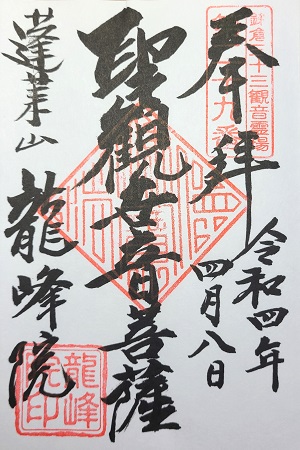 奉拝
鎌倉三十三観音霊場
第二十九番
令和四年
四月八日
聖観世音菩薩
蓬莱山
龍峰院
龍峰
院印